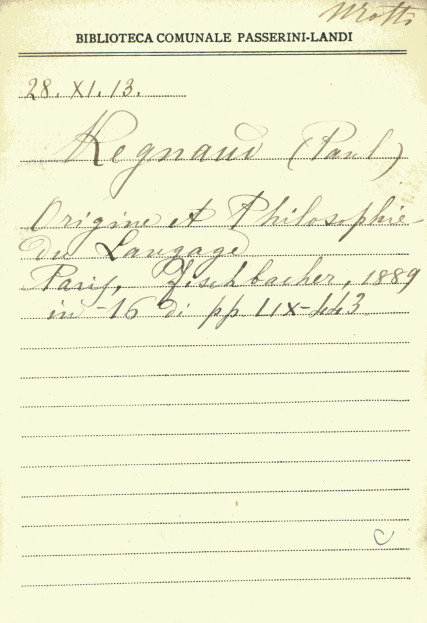 BIBLIOTECA COMUNALE PASSERINI-LANDI
28. XI. 13.
Regnaud (Paul)
Origine et Philosophie
du Langage
Paris, Fischbacher, 1889
in-16 di pp. LIX-443